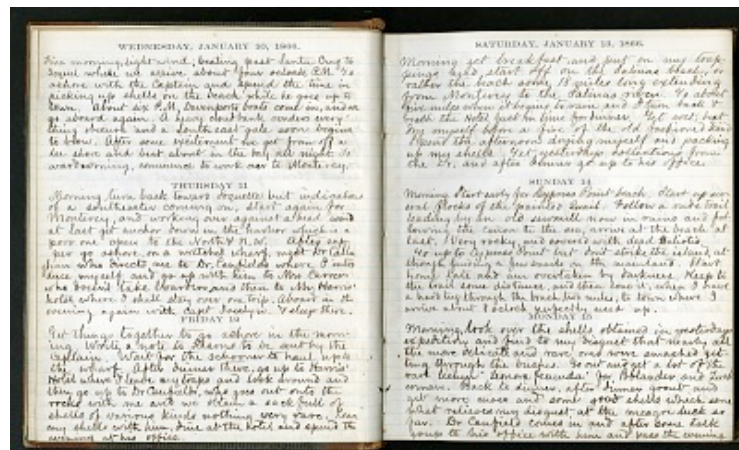 WEDNESDAY, JANUARY 10, 1866.
Fine morning, light wind, beating past Santa Cruz to
Soquel where we arrive about four oclock P.M. Go
ashore with the Captain and spend the time in
picking up shells on the beach while he goes up to
town. about six P.M. Davenports boats come on, and we
go aboard again. A heavy cloud bank renders every
thing obscure and a south east gale soon begins
to blow. After some excitement we get from off a
lee shore and beat about in the bay all night.
commence to work over to Monterey.
THURSDAY 11
Morning turn back toward Soquel but indications
of a southeaster coming on, start again for
Monterey, and working over against a head wind
at last get anchor down in the harbor which is a
poor one open to the North & N.W. After sup-
per go ashore on a wretched wharf, meet Dr
who directs me to Dr. Canfields where I intro
duce myself and go up with him to Mrs.
who doesn't take boarders, and then to Mrs Harris'
hotel where I shall stay over one trip. Aboard in the
evening again with Capt. & sleep there.
FRIDAY 12
Get things together to go ashore in the morn-
ing. Write a note to to be sent by the
Captain. Wait for the schooner to haul up to
the wharf. After dinner there, go up to Harris'
Hotel where I leave my traps and look around and
then go up to Dr Canfields, who goes out onto the
rocks with me and we obtain a sack full of
shells of various kinds nothing very rare. Leave
my shells with him, dine at the hotel and spend the
evening at his office.
SATURDAY, JANUARY 13, 1866.
Morning get breakfast, and put on my
start off on the Salinas beach, or
rather the beach some 18 miles long extending
from Monterey to the Salinas river. Go about
five miles when it begins to rain and I turn back &
reach the Hotel just in time for dinner. Get wet, but
dry myself before a fire of the old fashioned kind
Spend the afternoon drying myself and packing
up my shells. Get yesterdays collections from
the Dr. and after dinner go up to his office.
SUNDAY 14
Morning Start early for Cypress Point beach. Start up sev
eral flocks of the painted Quail. Follow a rude trail
leading by an old sawmill now in ruins and fol-
lowing the cañon to the sea, arrive at the beach at
last. Very rocky, and covered with dead Haliotis.
Go up to Cypress Point but don't strike the island, al-
though finding a few snails on the mainland. Start
home late and am overtaken by darkness. Keep to
the trail some distance, and then lose it, when I have
a hard tug through the brush two miles, to town where I
arrive about 8 oclock perfectly used up.
MONDAY 15
Morning, look over the shells obtained in yesterdays
expedition and find to my disgust that nearly all
the more delicate and rare ones were smashed get-
ting through the bushes. Go out and get a lot of the
rare lichen for Bolander and
Back to dinner, after dinner go out and
get more moss and some good shells which some
what relieves my disgust at the meagre luck so
far. Dr Canfield comes in and after some talk
go up to his office with him and pass the evening